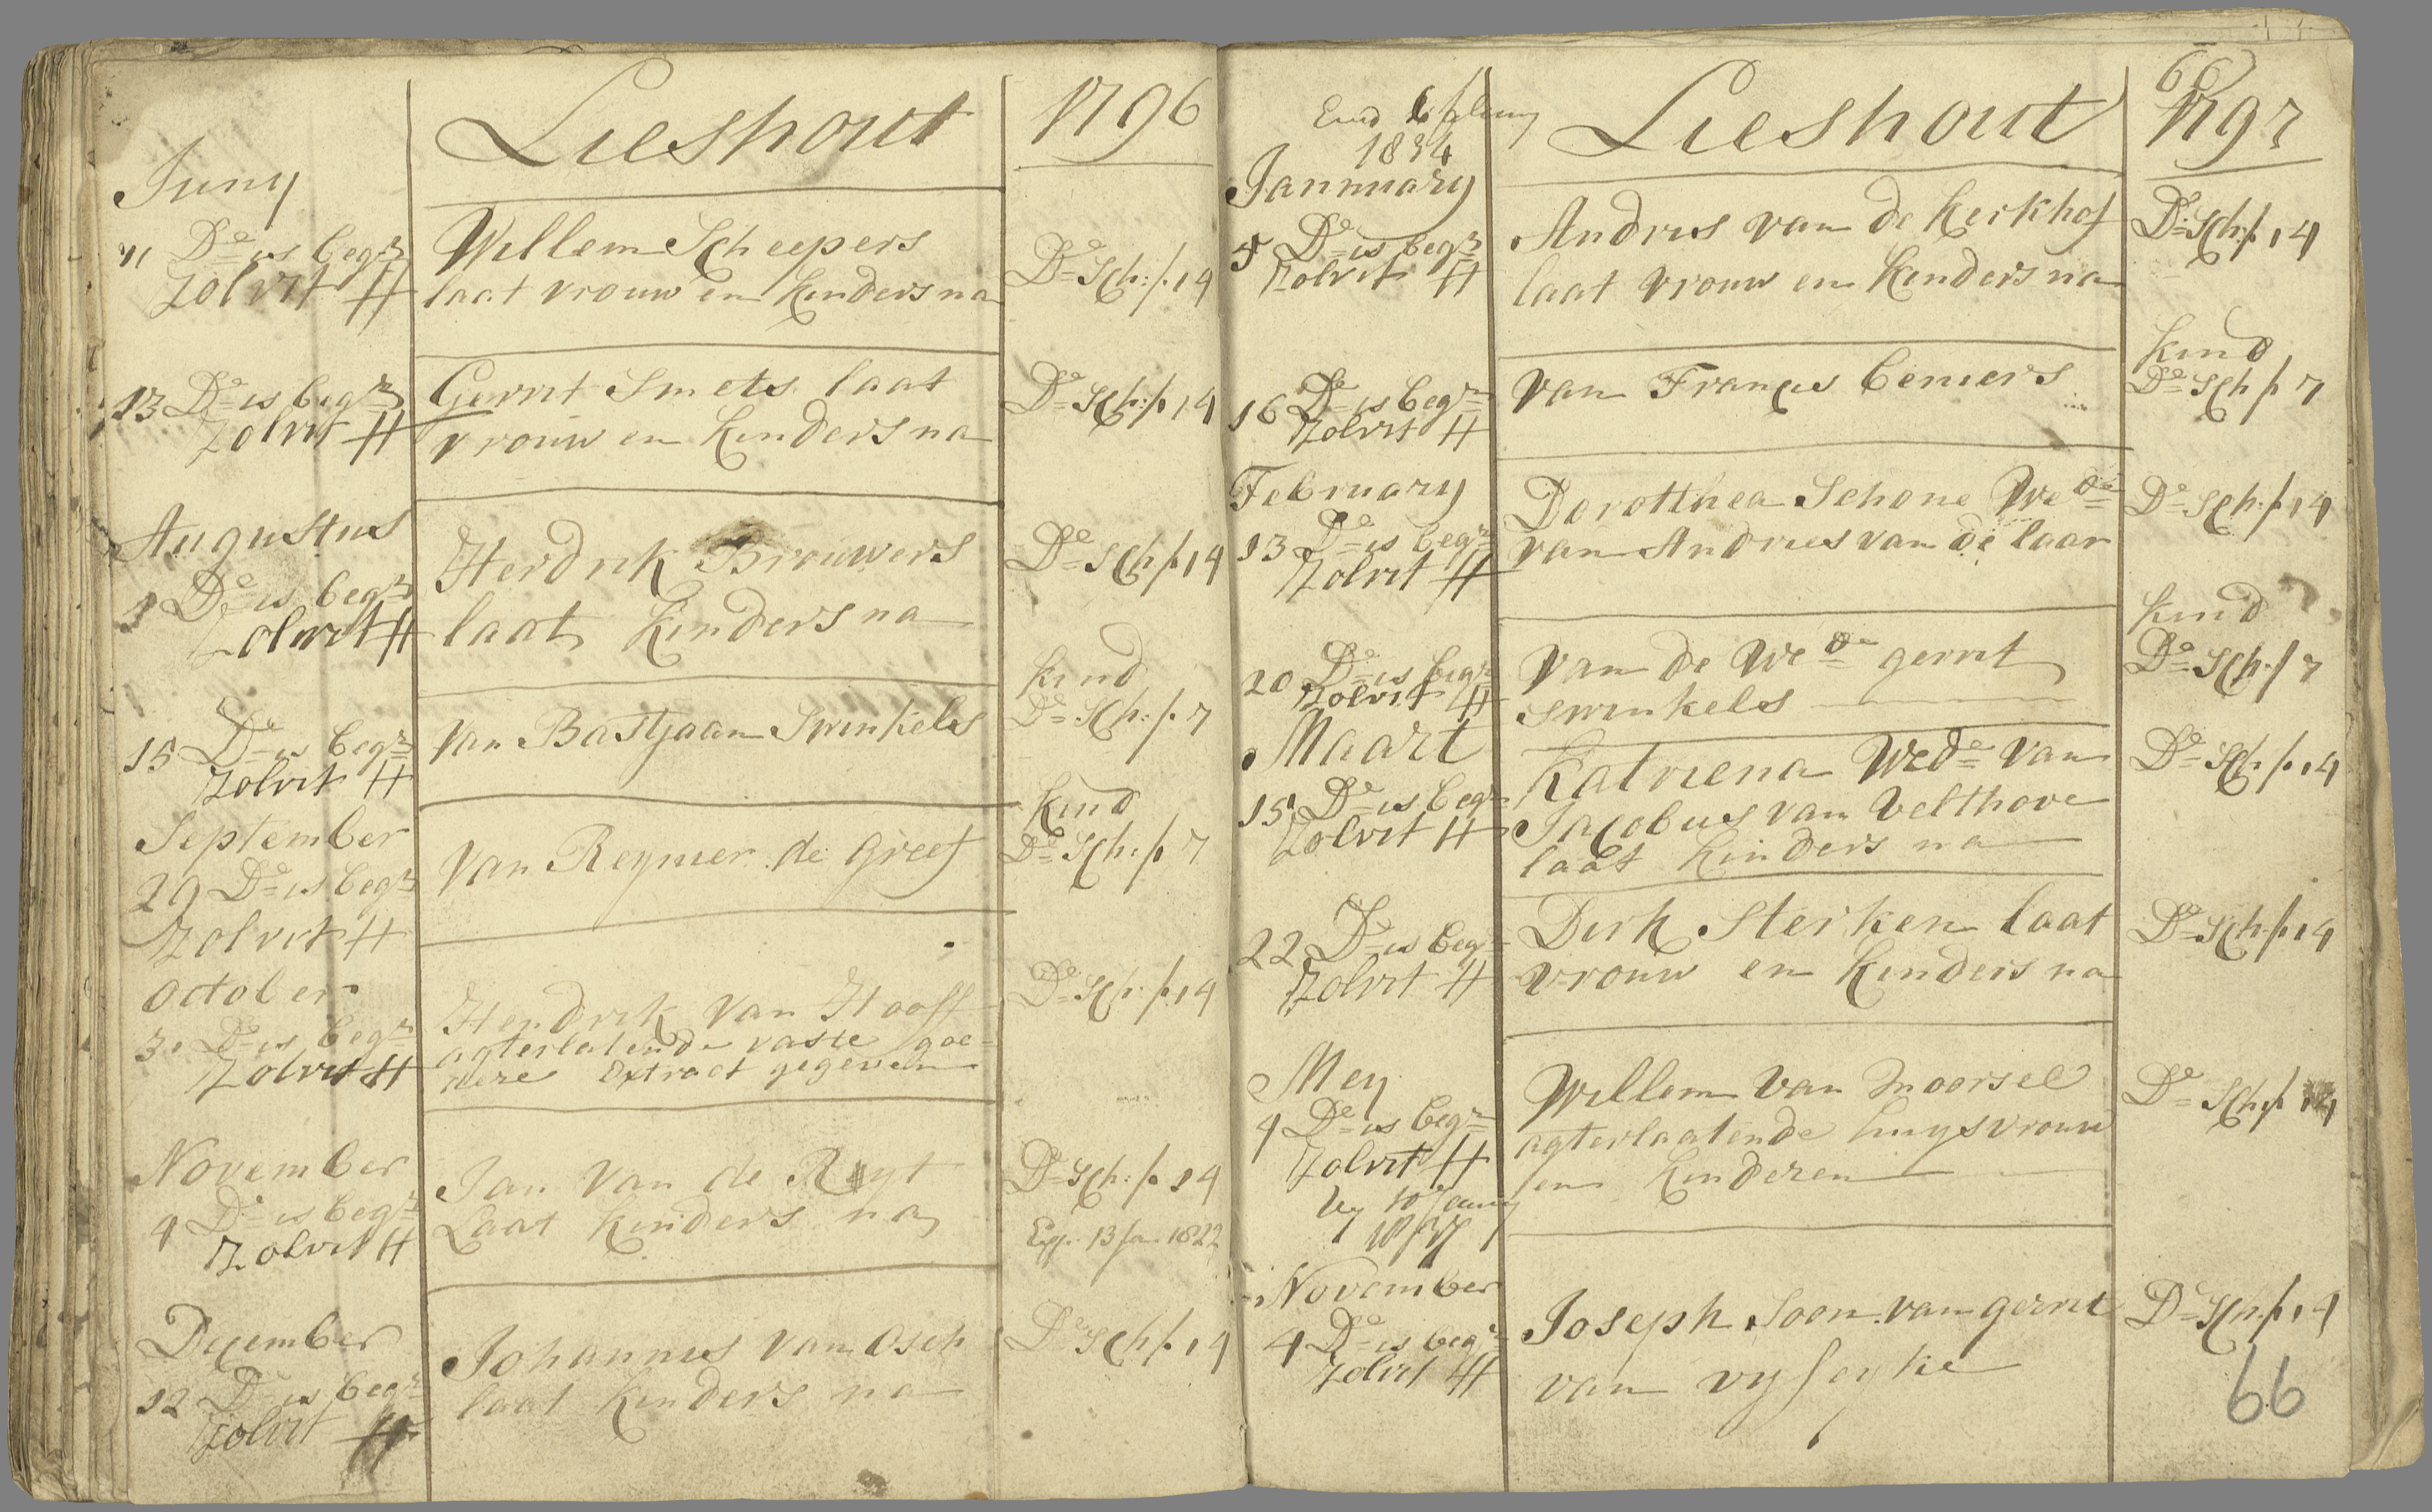 Lieshout
1796
Juny
11 De is begr
Zolvit #
Willem Scheepers
laat vrouw en kinders na
De Sch: f. 14
13 De is begr
Zolvit #
Gerrit Smets laat
vrouw en kinders na
De Sch: f. 14
Augustus
1 De is begr
Zolvit #
Herdrik Brouwers
laat kinders na
De Sch f. 14
15 De is begr
Zolvit #
van Bastjaan Swinkels
kind
De Sch: f. 7
September
29 De is begr
Zolvit #
van Reynier de greef
kind
De Sch: f. 7
October
3 De is begr
Zolvit #
Hendrik van Hooff
agterlatende vaste goe-
dere Extract gegeven
De Sch: f. 14
November
4 De is begr
Zolvit #
Jan van de Ruyt
Laat kinders na
De Sch: f. 14
13 Jan 1822
December
12 De is begr
Zolvit #
Johannes van Osch
laat kinders na
De Sch f. 14
Lieshout
66
1797
1834
Jannuary
5 De is begr
Zolvit #
Andries van de Kerkhof
laat vrouw en kinders na
De Sch: f. 14
16 De is begr
Zolvit #
van Francis Bemers
kind
De Sch f 7
February
13 De is begr
Zolvit #
Dorotthea Schone We de
van Andries van de laar
De Sch: f. 14
20 De is begr
Zolvit #
van de We de gerrit
swinkels
kind
De Sch: f 7
Maart
15 De is begr
Zolvit #
Katriena Wede van
Jacobus van Velthove
laat kinders na
De Sch. f. 14
22 De is begr
Zolvit #
Dirk Sterken laat
vrouw en kinders na
De Sch. f. 14
Mey
4 De is begr
Zolvit #
Willem van Moorsel
agterlaatende huysvrouw
en kinderen
De Sch. f. 14
November
4 De is begr
Zolvit #
Joseph Soon van gerrit
van vyfeyke
De Sch. f. 14
66